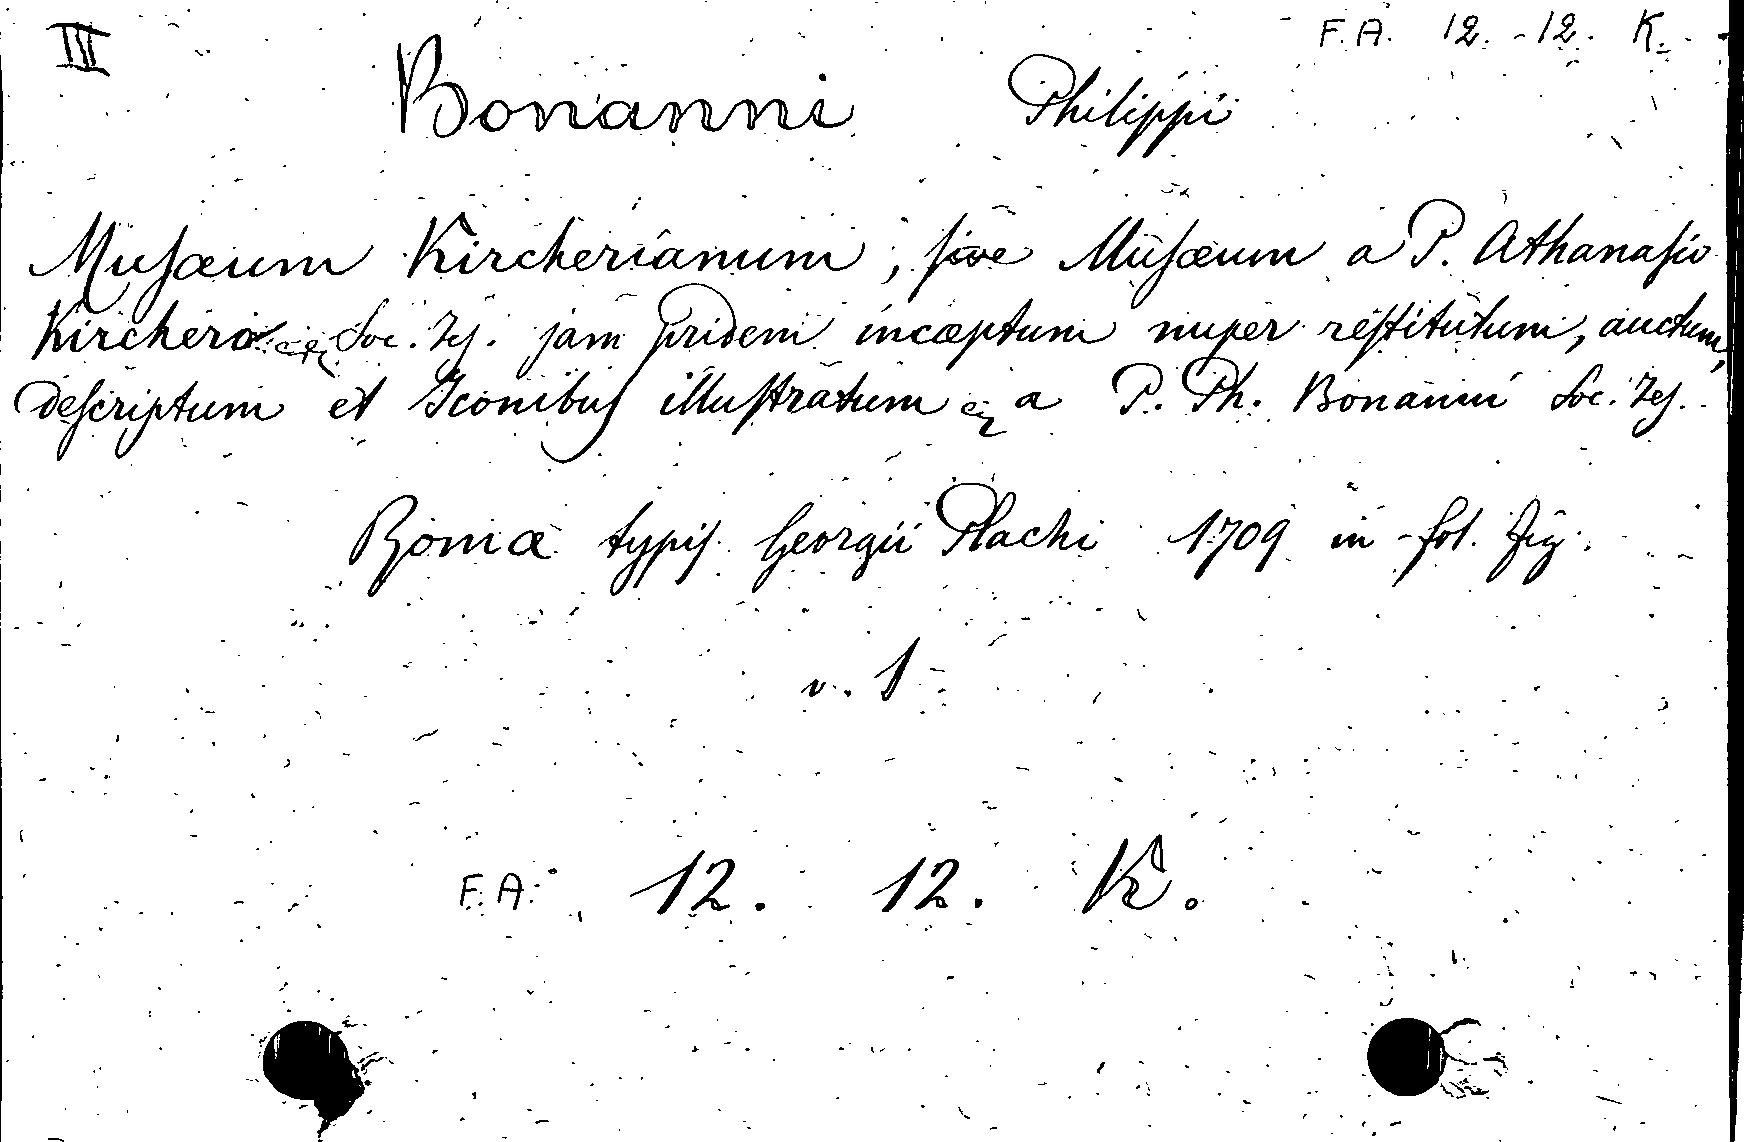 III F.A. 12.-12. K.
Bonanni Philippi
Musæum Kircherianum, sive Musæum a P. Athanasio
Kirchero Soc. Jes. jam pridem incæptum nuper restitutum, auctum,
descriptum et Iconibus illustratum a P. Ph. Bonanni Soc. Jes.
Romæ typis Georgii Plachi 1709 in-fol. fig.
v. 1
F.A. 12. 12. K.